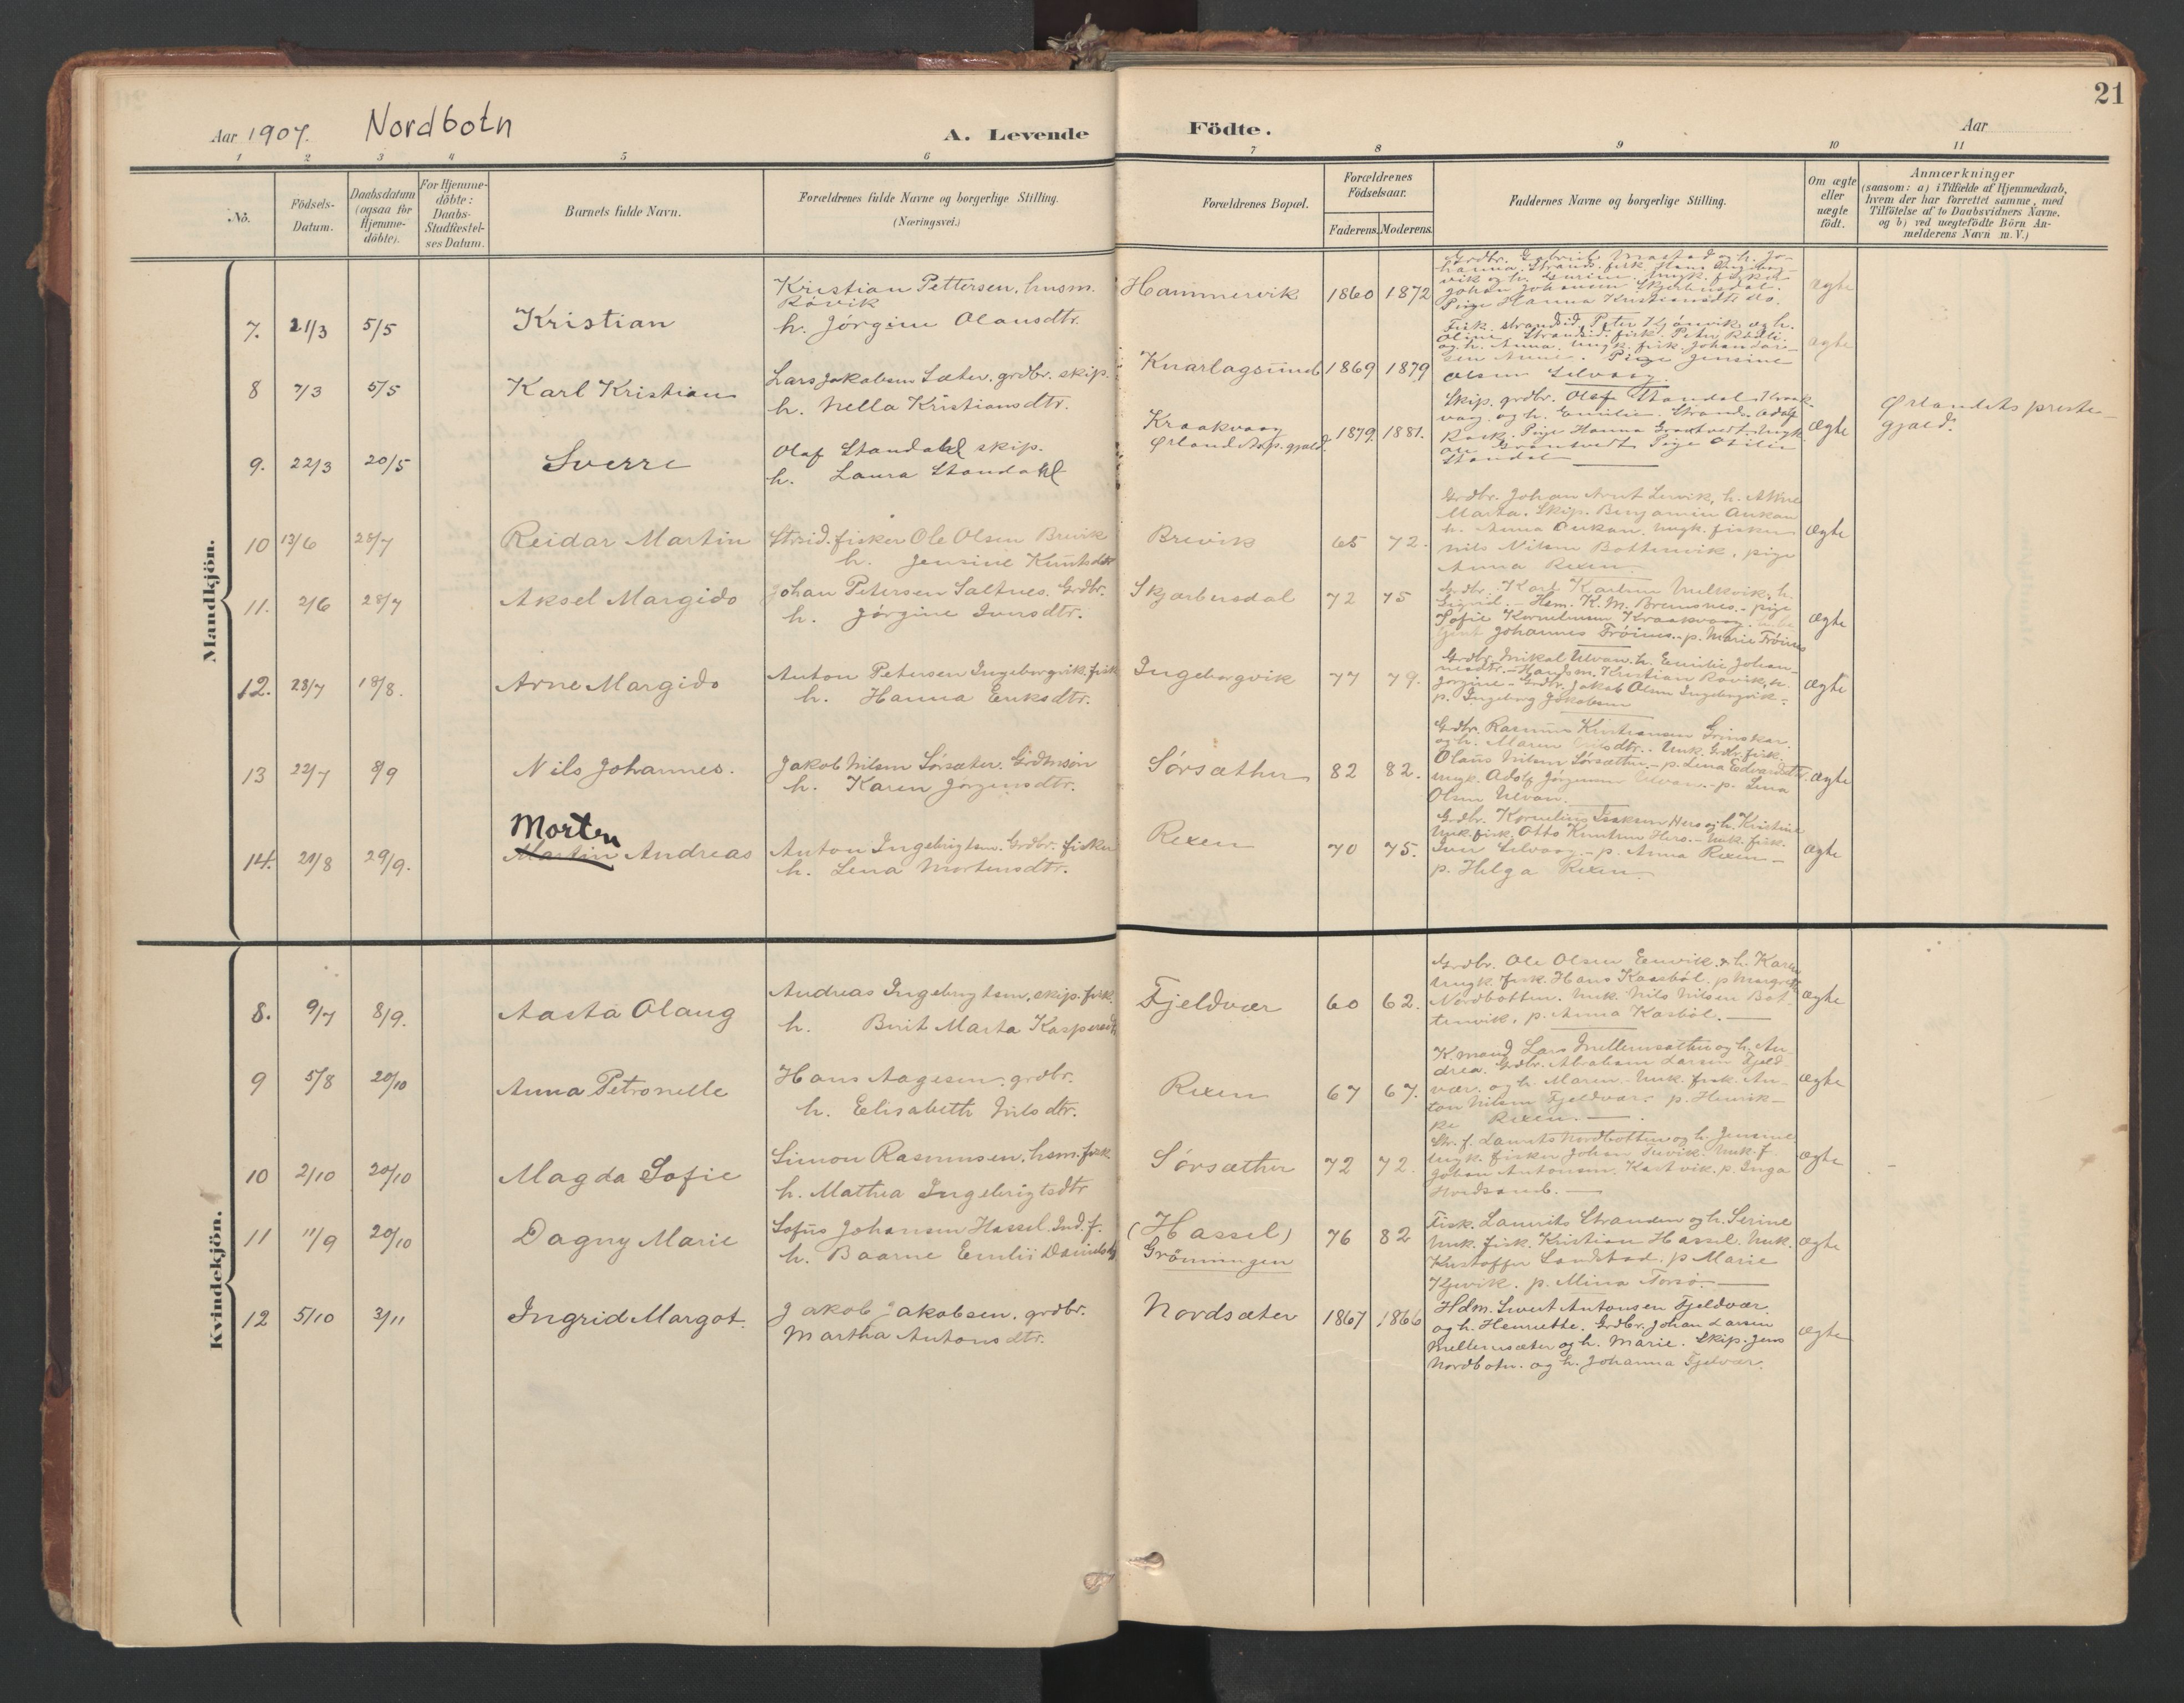 21
Aar 1907. Nordbotn A. Levende Födte. Aar
1 2 3 4 5 6 7 8 9 10 11
No.
Födsels-Datum.
Daabsdatum (ogsaa for Hjemme-döbte).
For Hjemme-döbte: Daabs-Stadfæstel-ses Datum.
Barnets fulde Navn.
Forældrenes fulde Navne og borgerlige Stilling. (Næringsvei.)
Forældrenes Bopæl.
Forældrenes Födselsaar.
Faderens. Moderens.
Faddernes Navne og borgerlige Stilling.
Om ægte eller uægte födt.
Anmærkninger
(saasom: a) i Tilfælde af Hjemmedaab,
hvem der har forrettet samme, med
Tilföielse af to Daabsvidners Navne,
og b) ved uægtefödte Börn An-
melderens Navn m. V.)
Mandkjön.
7. 21/3 5/5 Kristian
Kristian Pettersen, husm.
Rövik
h. Jörgine Olausdtr.
Hammervik 1860 1872 ægte
8 7/3 5/5 Karl Kristian
Lars Jakobsen Sæter. grdbr. skip.
h. Nella Kristiansdtr.
Knarlagsund 1869 1879
Fisk. strandsid. Peter Kjönvik og h.
Olsen Selvaag.
ægte
9. 22/3 20/5 Sverre
Olaf Standahl skip.
h. Laura Standahl
Kraakvaag
Ørlandets p. gjæld. 1879. 1881.
Skip. grdbr. Olaf Standal Kraak-
vaag og h. Emilie. Strands. Adolf
Standal
ægte
Ørlandets preste-
gjæld.
10 13/6 28/7 Reidar Martin
Strsid. fisker Ole Olsen Brevik
h. Jensine Knutsdtr
Brevik 65 72.
Grdbr. Johan Arnt Lervik, h. Anne
Marta. Skip. Benjamin Aukan
h. Anna Aukan. ungk. fisker
Nils Nilsen Bottenvik, pige
Anna Rexen.
ægte
11. 2/6 28/7 Aksel Margido
Johan Petersen Saltnes. Grdbr.
h. Jörgine Iversdtr.
Skjærbersdal 72 75
Sigrid. - Hem. K. M. Bremsnes. - pige
Sofie Kornelsen Kraakvaag.
Johannes Fröines. - p. Marie Fröines
ægte
12. 28/7 18/8. Arne Margido
Anton Petersen Ingeborgvik, fisk
h. Hanna Eriksdtr.
Ingeborgvik 77 79.
Grdbr. Mikal Ulvan. h. Emilie Johan-
nesdtr. - Handsm. Kristian Rövik, h.
Jörgine - Grdbr. Jakob Olsen Ingeborgvik -
p. Ingeborg Jakobsen
ægte
13 22/7 8/9 Nils Johannes.
Jakob Nilsen Sörsæter. Grdmsön
h. Karen Jörgensdtr.
Sörsæther 82 82.
Grdbr. Rasmus Kristiansen Grinskar.
og h. Maren Nilsdtr. - Unk. Grdbr. fisk.
Olaus Nilsen Sörsæther. - p. Lena Edvardsdtr.
ungk. Adolf Jörgensen Ulvan. - p. Lena
Olsen Ulvan.
ægte
Morten
14. 20/8 29/9. Martin Andreas
Anton Ingebrigtsen. Grdbr. fisker
h. Lena Mortensdtr.
Rexen 70 75.
Grdbr. Kornelius Isaksen Hero og h. Kristine
Unk. fisk. Otto Knutsen Hero. - Unk. fisk.
Iver Selvaag - p. Anna Rexen -
p. Helga Rexen.
ægte
Kvindekjön.
8. 9/7 8/9. Aasta Olaug
Andreas Ingebrigtsen, skip. fisk.
h. Berit Marta Kaspersdtr
Fjeldvær 60 62.
Grdbr. Ole Olsen Envik & h. Karen
Ungk. fisk. Hans Kaasböl. p Margrete
Nordbotten. Unk. Nils Nilsen Bot-
tenvik, p. Anna Kasböl.
ægte
9 5/8 20/10 Anna Petronelle
Hans Aagesen. grdbr.
h. Elisabeth Nilsdtr.
Rexen 67 67.
K.mand Lars Mellemsæther og h. An-
drea. Grdbr. Abraham Larsen Fjeld-
vær. og h. Maren. Unk. fisk. An-
ton Nilsen Fjeldvær. p. Henrik-
ke Rexen.
ægte
10 2/10 20/10 Magda Sofie
Simon Rasmussen. hsm. fisk.
h. Mathea Ingebrigtsdtr
Sörsæther 72 72.
Str. f. Laurits Nordbotten og h. Jensine
ungk. fisker Johan Tuvik. Unk. f.
Johan Antonsen. Kastvik. p. Inga
ægte
11 11/9 20/10 Dagny Marie
Sofus Johansen Hassel. Ind. f.
h. Baarne Emilie Danielsdtr
(Hassel)
Grönningen 76 82
Fisk. Laurits Stranden og h. Serine
Unk. fisk. Kristian Hassel. Unk.
Kristoffer Sandstad. p Marie
Kjervik. p. Mina Torsö.
ægte
12 5/10 3/11 Ingrid Margot.
Jakob Jakobsen. grdbr.
Martha Antonsdtr.
Nordsæter 1867 1866
Hdm. Sivert Antonsen Fjeldvær.
og h. Henriette. Grdbr. Johan Larsen
Mellemsæter og h. Marie. Skip. Jens
Nordbotn. og h. Johanna Fjelvær.
ægte